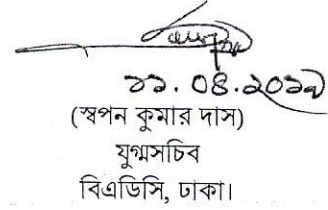 ২২.০৪.২০১৯
(স্বপন কুমার দাস)
যুগ্মসচিব
বিএডিসি, ঢাকা।